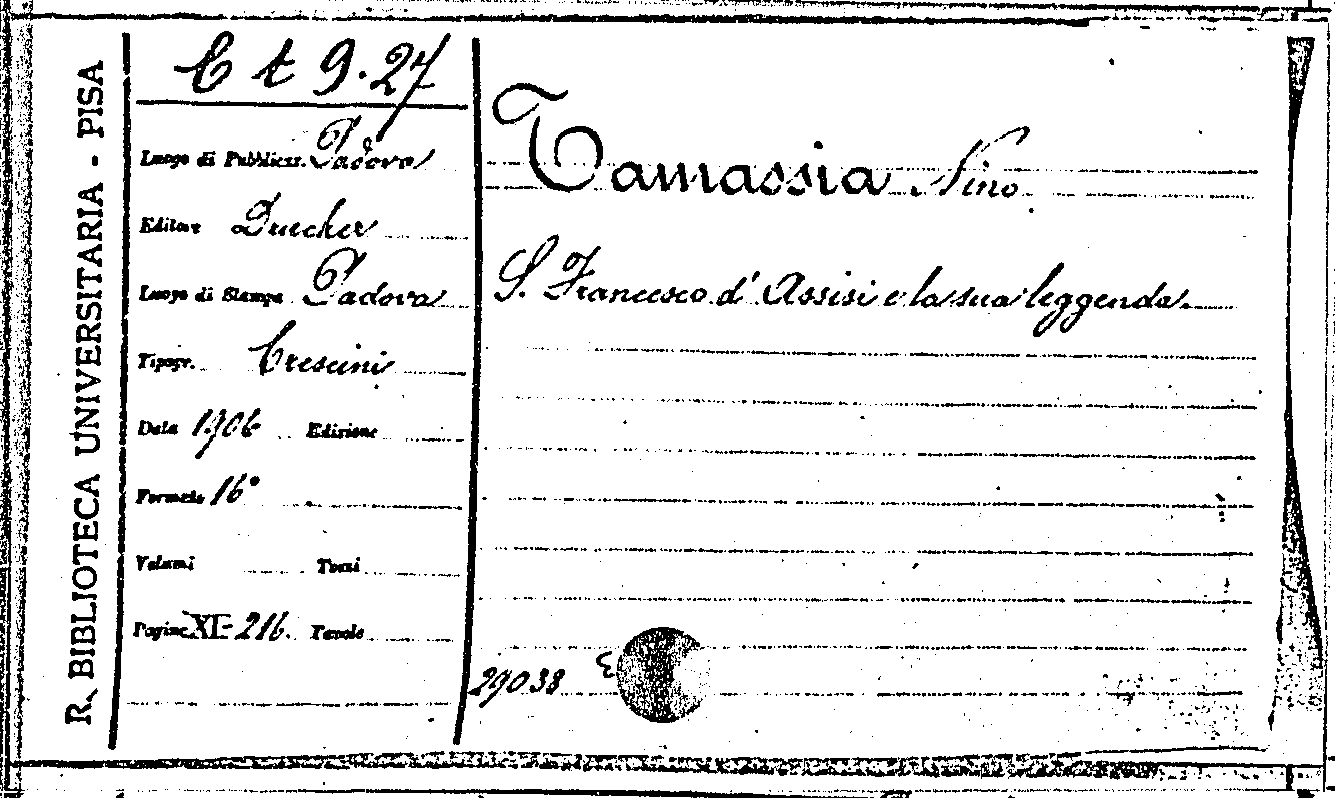 R. BIBLIOTECA UNIVERSITARIA - PISA
C t 9.27
Luogo di Pubblicaz. Padova
Editore Drucker
Luogo di Stampa Padova
Tipogr. Crescini
Data 1906 Edizione
Formato 16°
Volumi Tomi
Pagine XI-216. Tavole
Tamassia Nino
S. Francesco d'Assisi e la sua leggenda.
29038